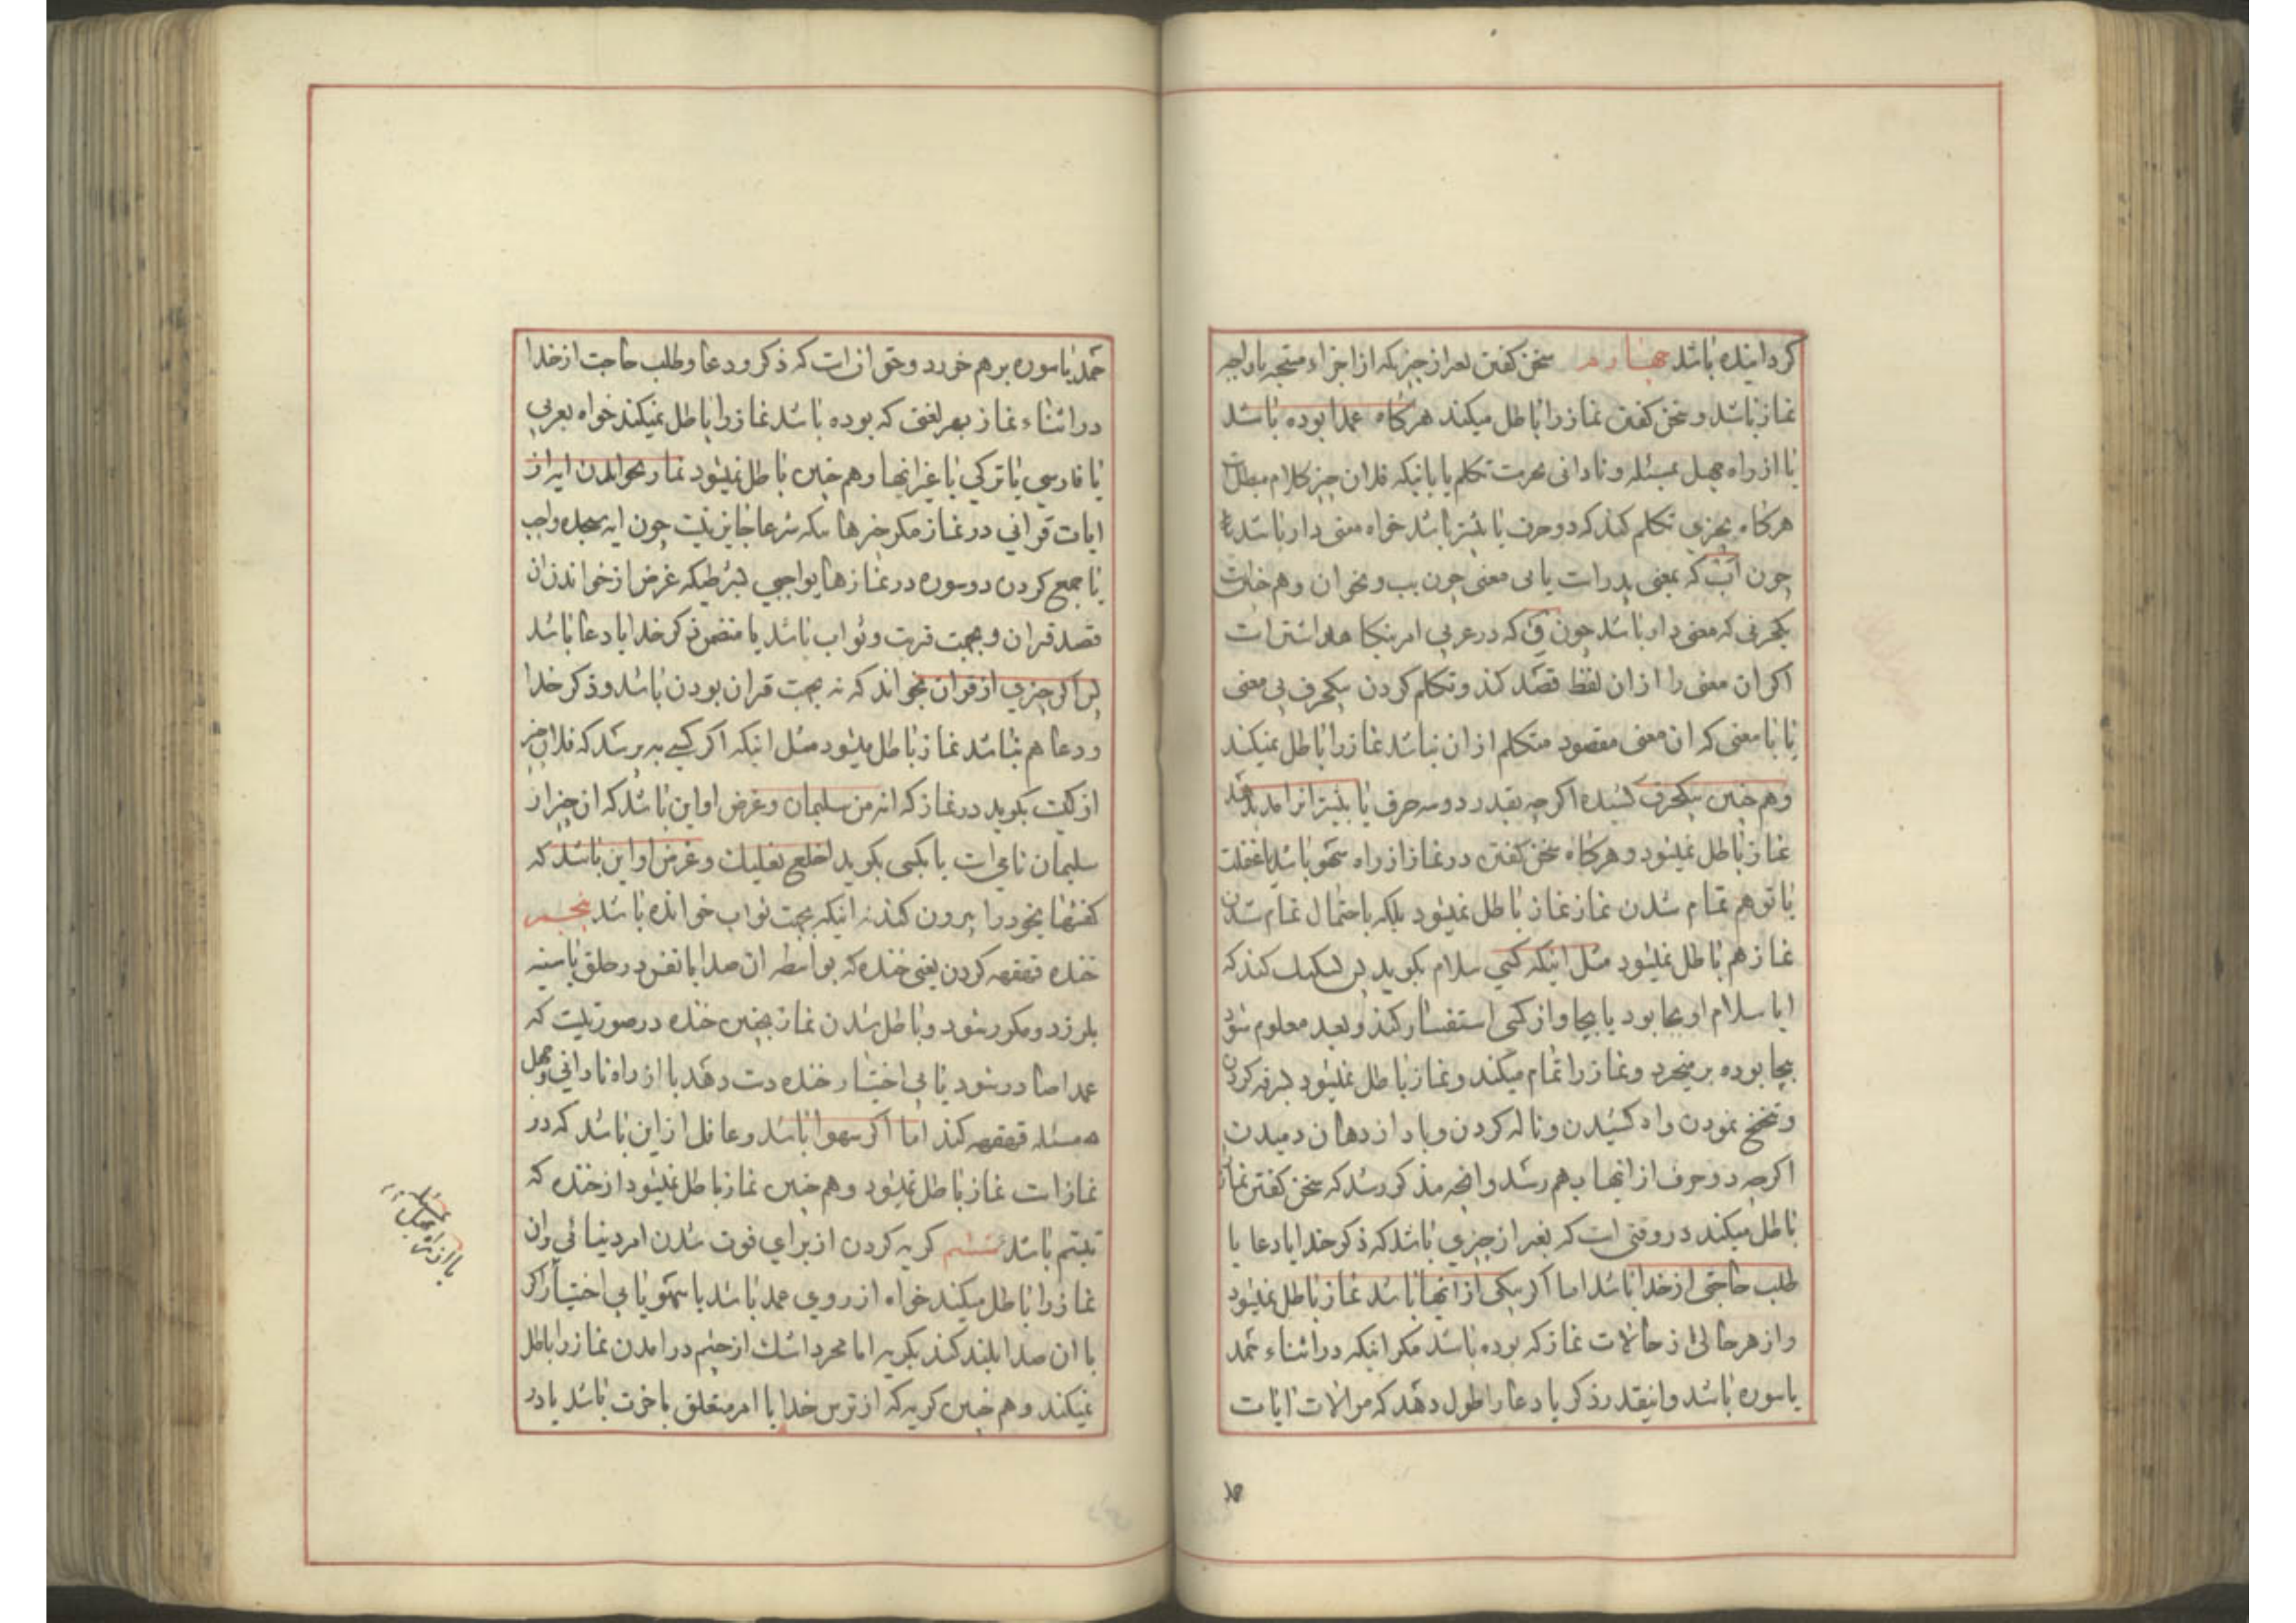 کردانیده باشد چهارم سخن کفتن بغیر از چیزیکه از اجزاء مستحبه یا واجبه
نماز باشد و سخن کفتن نماز را باطل میکند هرکاه عمدا بوده باشد
یا از راه جهل بمسئله و نادانی بحرمت تکلم یا بانیکه فلان چیز کلام مبطل است
هرکاه بچیزی تکلم کند که دو حرف یا بیشتر باشد خواه معنی دار باشد یا نه
چون اب که بمعنی پدر است یا بی معنی چون بب و نحو ان و هم چنین است
یکحرفی که معنی دار باشد چون ق که در عربی امر بنکاهداشتن است
اکر ان معنی را از ان لفظ قصد کند و تکلم کردن بیکحرف بی معنی
یا با معنی که ان معنی مقصود متکلم از ان نباشد نماز را باطل نمیکند
و هم چنین یکحرف کشیده اکرچه بقدر دو سه حرف یا بیشتر انرا مد بدهد
نماز باطل نمیشود و هرکاه سخن کفتن در نماز از راه سهو باشد یا غفلت
یا توهم تمام شدن نماز نماز باطل نمیشود بلکه باحتمال تمام شدن
نماز هم باطل نمیشود مثل اینکه کسی سلام بکوید پس تشکیک کند که
ایا سلام او بجا بود یا بیجا و از کسی استفسار کند و بعد معلوم شود
بیجا بوده برمیخیزد و نماز را تمام میکند و نماز باطل نمیشود بسرفه کردن
و تنحنح نمودن و اه کشیدن و ناله کردن و باد از دهان دمیدن
اکرچه دو حرف از انها بهم رسد و انچه مذکور شد که سخن کفتن نماز را
باطل میکند در وقتی است که بغیر از چیزی باشد که ذکر خدا یا دعا یا
طلب حاجتی از خدا باشد اما اکر یکی از انها باشد نماز باطل نمیشود
و از هر حالی از حالات نماز که بوده باشد مکر انیکه در اثناء حمد
یا سوره باشد و انیقدر ذکر یا دعا را طول دهد که موالات ایات
حمد یا سوره برهم خورد و حق ان است که ذکر و دعا و طلب حاجت از خدا
در اثناء نماز بهر لغتی که بوده باشد نماز را باطل نمیکند خواه بعربی
یا فارسی یا ترکی یا غیر انها و هم چنین باطل نمیشود نماز بخواندن ایه از
ایات قرانی در نماز مکر چیزهائیکه شرعا جایز نیست چون ایه سجده واجب
یا جمع کردن دو سوره در نمازهای واجبی بشرطیکه غرض از خواندن ان
قصد قران و بجهت قربت و ثواب باشد یا متضمن ذکر خدا یا دعا باشد
پس اکر چیزی از قران بخواند که نه بجهت قران بودن باشد و ذکر خدا
و دعا هم نباشد نماز باطل میشود مثل انیکه اکر کسی بپرسد که فلان چیز
از کیست بکوید در نماز که انه من سلیمان و غرض او این باشد که ان چیز از
سلیمان نامی است یا بکسی بکوید اخلع نعلیک و غرض او این باشد که
کفشهای خود را بیرون کند نه انیکه بجهت ثواب خوانده باشد پنجم
خنده قهقهه کردن یعنی خنده که بواسطه ان صدا یا نفس در حلق یا سینه
بلرزد و مکرر شود و باطل شدن نماز بچنین خنده در صورتیست که
عمدا صادر شود یا بی اختیار خنده دست دهد یا از راه نادانی و جهل
مسئله قهقهه کند اما اکر سهوا باشد و غافل از این باشد که در
نماز است نماز باطل نمیشود و هم چنین نماز باطل نمیشود از خنده که
تبسم باشد ششم کریه کردن از برای فوت شدن امر دنیائی و ان
نماز را باطل میکند خواه از روی عمد باشد یا سهو یا بی اختیار اکر
با ان صدا بلند کند بکریه اما مجرد اشک از چشم در امدن نماز را باطل
نمیکند و هم چنین کریه که از ترس خدا یا امر متعلق باخرت باشد یا در